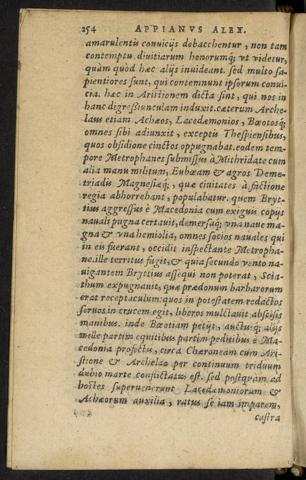 254 APPIANVS ALEX.
amarulentis conuicijs dobacchentur, non tam
contemptu diuitiarum honorumq; vt videtur,
quàm quòd hæc alijs inuideant. sed multo sa-
pientiores sunt, qui contemnunt ipsorum conui-
cia. hæc in Aristionem dicta sunt, qui nos in
hanc digressiunculam induxit. cæterum Arche-
laus etiam Achæos, Lacedæmonios, Bœotosq;
omnes sibi adiunxit, exceptis Thespiensibus,
quos obsidione cinctos oppugnabat. eodem tem-
pore Metrophanes submissus à Mithridate cum
alia manu militum, Eubœam & agros Deme-
triadis Magnesiæq; quæ ciuitates à factione
regia abhorrebant, populabatur. quem Bryt-
tius aggressus è Macedonia cum exiguis copijs
nauali pugna certauit, demersaq; vna naue ma-
gna & vna hemiolia, omnes socios nauales qui
in eis fuerant, occidit inspectante Metropha-
ne. ille territus fugit, & quia secundo vento na-
uigantem Bryttius assequi non poterat, Scia-
thum expugnauit, quæ prædonum barbarorum
erat receptaculum: quos in potestatem redactos
seruos in crucem egit, liberos mulctauit abscisis
manibus. inde Bœotiam petijt, auctusq; alijs
mille partim equitibus partim peditibus è Ma-
cedonia profectis, circa Chæroneam cum Ari-
stione & Archelao per continuum triduum
dubio marte conflictatus est. sed postquam ad
hostes superuenerunt Lacedæmoniorum &
Achæorum auxilia, ratus se iam imparem,
castra